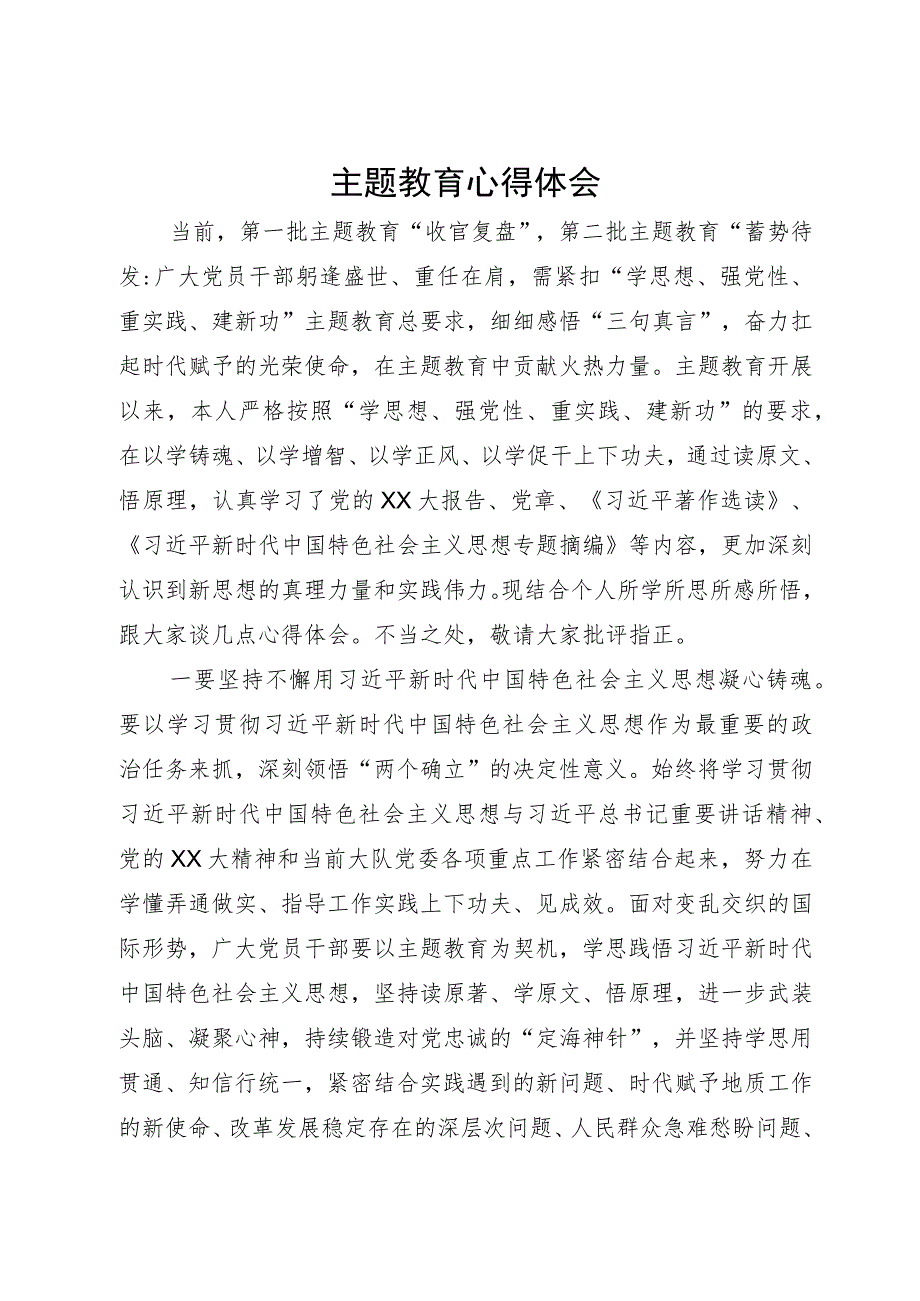 主题教育心得体会
当前，第一批主题教育“收官复盘”，第二批主题教育“蓄势待
发:广大党员干部躬逢盛世、重任在肩，需紧扣“学思想、强党性、
重实践、建新功”主题教育总要求，细细感悟“三句真言”，奋力扛
起时代赋予的光荣使命，在主题教育中贡献火热力量。主题教育开展
以来，本人严格按照“学思想、强党性、重实践、建新功”的要求，
在以学铸魂、以学增智、以学正风、以学促干上下功夫，通过读原文、
悟原理，认真学习了党的XX大报告、党章、《习近平著作选读》、
《习近平新时代中国特色社会主义思想专题摘编》等内容，更加深刻
认识到新思想的真理力量和实践伟力。现结合个人所学所思所感所悟，
跟大家谈几点心得体会。不当之处，敬请大家批评指正。
一要坚持不懈用习近平新时代中国特色社会主义思想凝心铸魂。
要以学习贯彻习近平新时代中国特色社会主义思想作为最重要的政
治任务来抓，深刻领悟“两个确立”的决定性意义。始终将学习贯彻
习近平新时代中国特色社会主义思想与习近平总书记重要讲话精神、
党的XX大精神和当前大队党委各项重点工作紧密结合起来，努力在
学懂弄通做实、指导工作实践上下功夫、见成效。面对变乱交织的国
际形势，广大党员干部要以主题教育为契机，学思践悟习近平新时代
中国特色社会主义思想，坚持读原著、学原文、悟原理，进一步武装
头脑、凝聚心神，持续锻造对党忠诚的“定海神针”，并坚持学思用
贯通、知信行统一，紧密结合实践遇到的新问题、时代赋予地质工作
的新使命、改革发展稳定存在的深层次问题、人民群众急难愁盼问题、